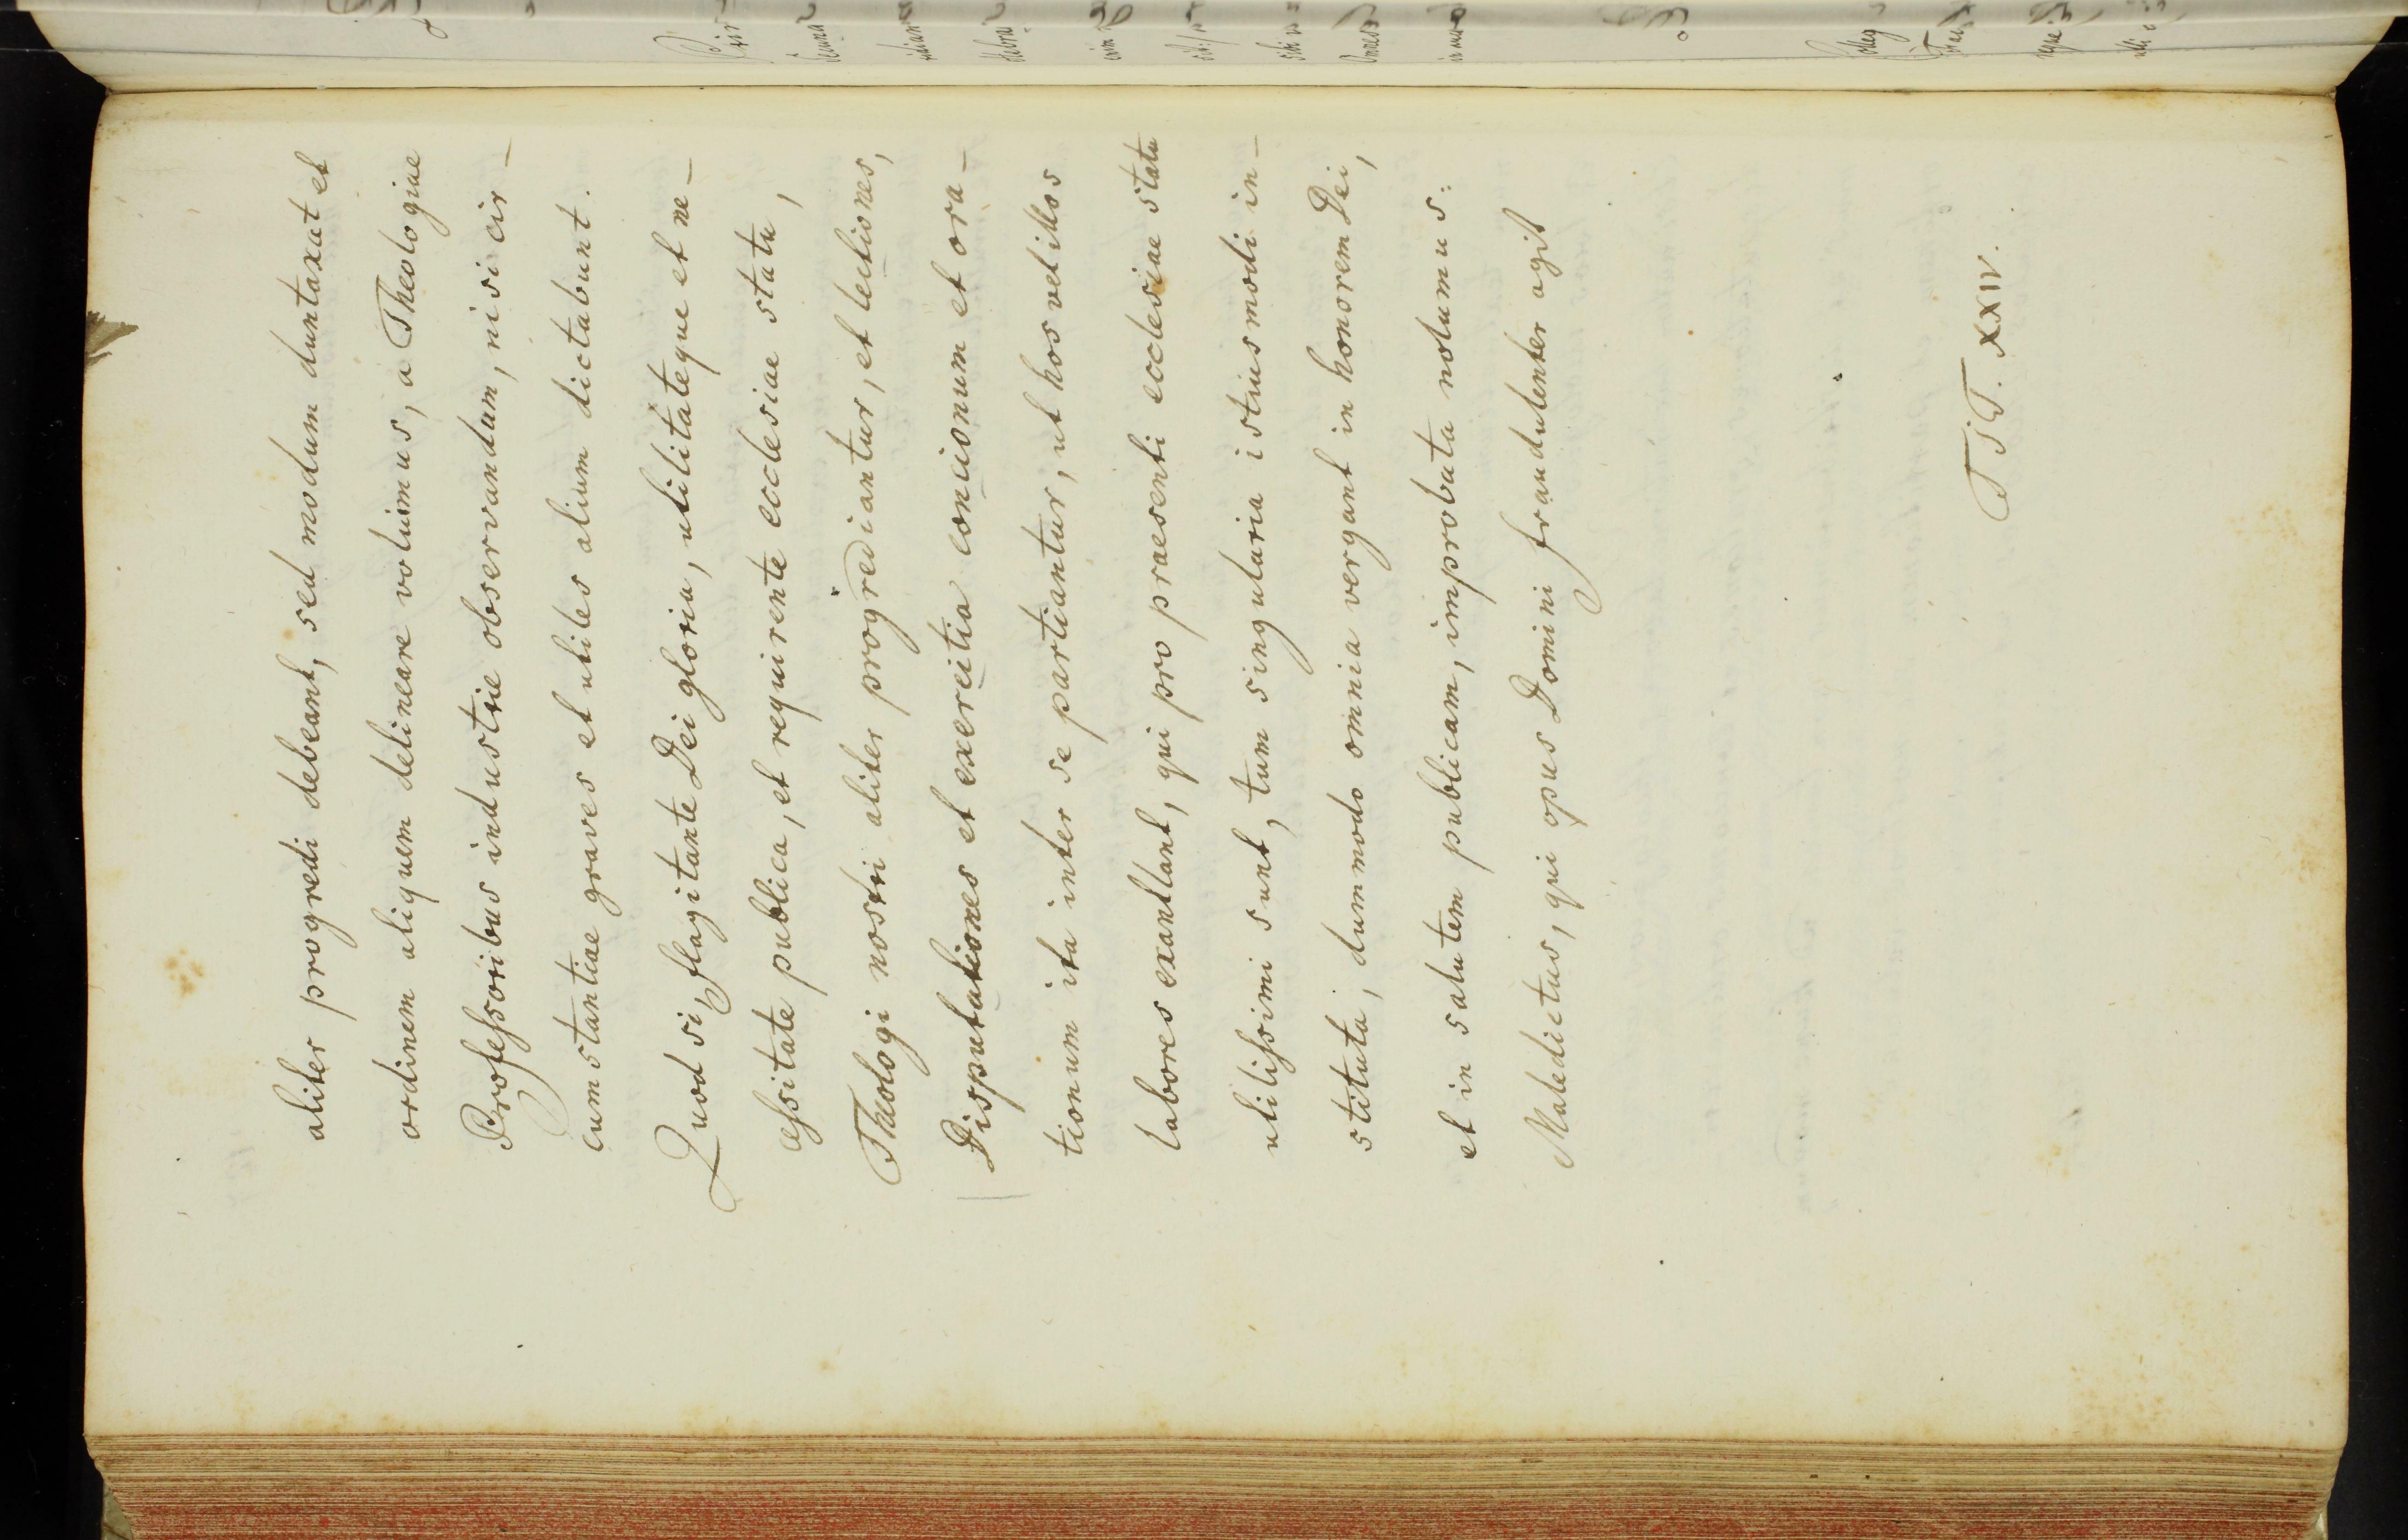 aliter progredi debeant, sed modum duntaxat et
ordinem aliquem delineare voluimus, a Theologiae
Professoribus industrie observandum, nisi cir-
cumstantiae graves et utiles alium dictabunt.
Quod si, flagitante Dei gloria, utilitateque et ne-
cessitate publica, et requirente ecclesiae statu,
Theologi nostri aliter progrediantur, et lectiones,
Disputationes et exercitia concionum et ora-
tionum ita inter se partiantur, ut hos vel illos
labores exantlant, qui pro praesenti ecclesiae statu
utilissimi sunt, tum singularia istiusmodi in-
stituta, dummodo omnia vergant in honorem Dei,
et in salutem publicam, improbata nolumus:
Maledictus, qui opus Domini fraudulenter agit
TiT. XXIV.